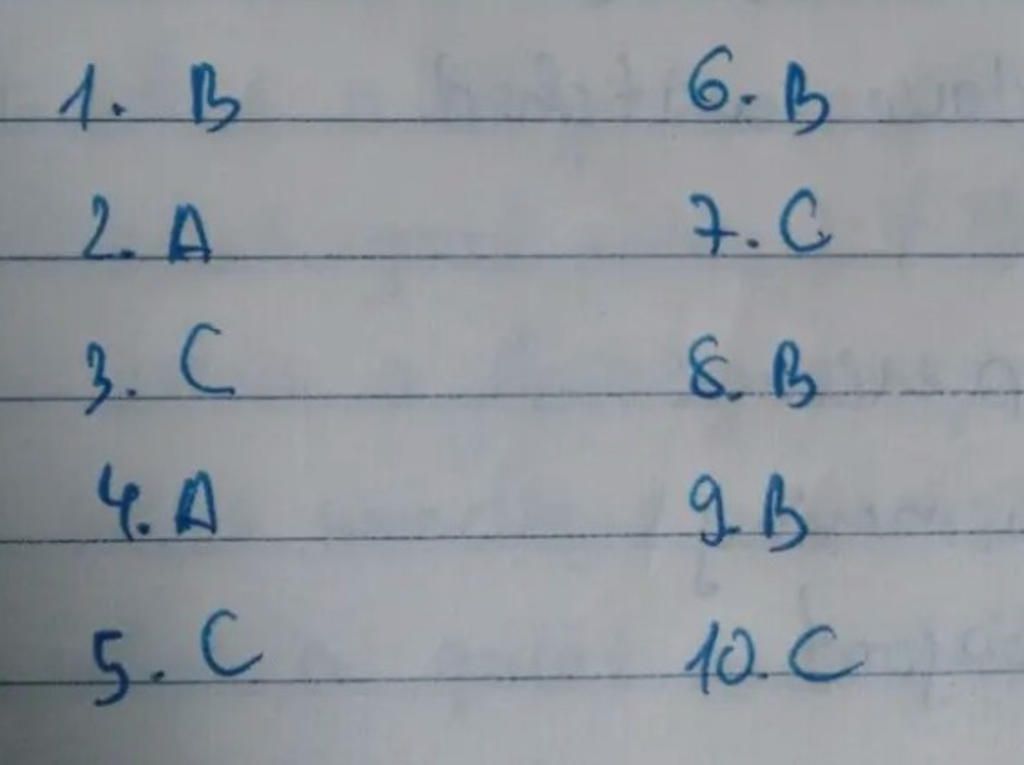 1. B
2. A
3. C
4. A
5. C
6. B
7. C
8. B
9. B
10. C